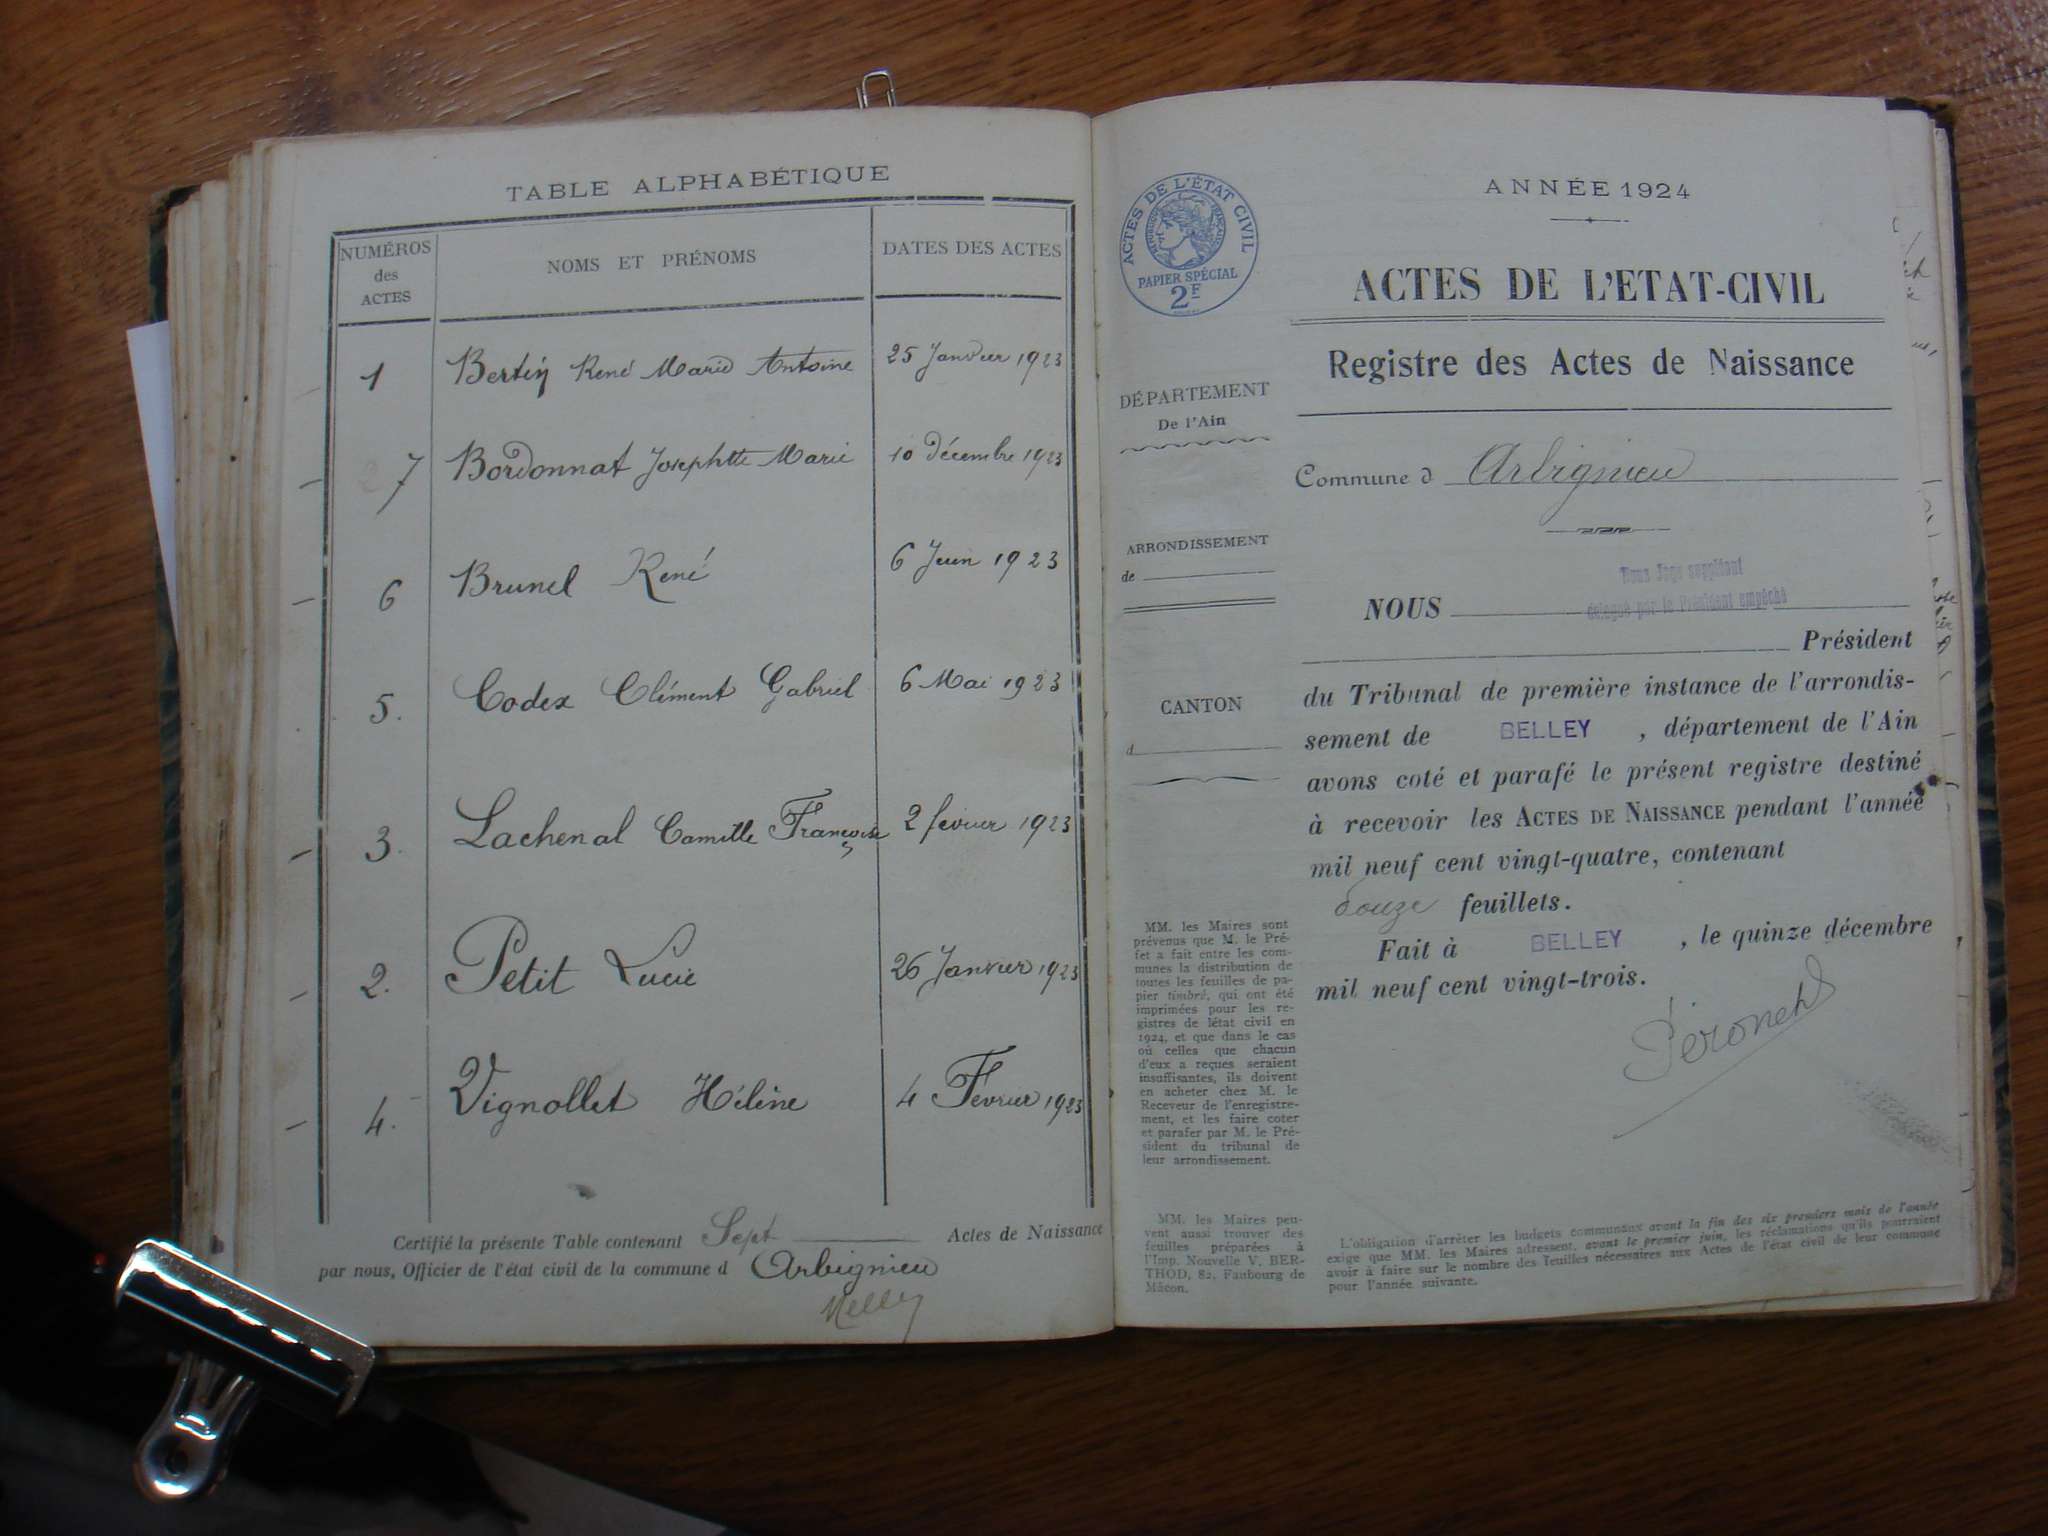 TABLE ALPHABÉTIQUE
NUMÉROS des ACTES NOMS ET PRÉNOMS DATES DES ACTES
1 Bertin René Marie Antoine 25 Janvier 1923
7 Bordonnat Josephtte Marie 10 décembre 1923
6 Brunel René 6 Juin 1923
5. Codex Clément Gabriel 6 Mai 1923
3. Lachenal Camille François 2 février 1923
2. Petit Lucie 26 Janvier 1923
4. Vignollet Hélène 4 Février 1923
Certifié la présente Table contenant Sept Actes de Naissance
par nous, Officier de l'état civil de la commune d Arbignieu
ACTES DE L'ÉTAT CIVIL
RÉPUBLIQUE FRANÇAISE
PAPIER SPÉCIAL
2F
DÉPARTEMENT
De l'Ain
ARRONDISSEMENT
de
CANTON
d
MM. les Maires sont
prévenus que M. le Pré-
fet a fait entre les com-
munes la distribution de
toutes les feuilles de pa-
pier timbré, qui ont été
imprimées pour les re-
gistres de létat civil en
1924, et que dans le cas
où celles que chacun
d'eux a reçues seraient
insuffisantes, ils doivent
en acheter chez M. le
Receveur de l'enregistre-
ment, et les faire coter
et parafer par M. le Pré-
sident du tribunal de
leur arrondissement.
MM. les Maires peu-
vent aussi trouver des
feuilles préparées à
l'Imp. Nouvelle V. BER-
THOD, 82, Faubourg de
Mâcon.
ANNÉE 1924
ACTES DE L'ETAT-CIVIL
Registre des Actes de Naissance
Commune d Arbignieu
Nous Juge suppléant
délégué par le Président empêché
NOUS
Président
du Tribunal de première instance de l'arrondis-
sement de BELLEY, département de l'Ain
avons coté et parafé le présent registre destiné
à recevoir les ACTES DE NAISSANCE pendant l'année
mil neuf cent vingt-quatre, contenant
douze feuillets.
Fait à BELLEY, le quinze décembre
mil neuf cent vingt-trois.
L'obligation d'arrêter les budgets communaux avant la fin des six premiers mois de l'année
exige que MM. les Maires adressent, avant le premier juin, les réclamations qu'ils pourraient
avoir à faire sur le nombre des feuilles nécessaires aux Actes de l'état civil de leur commune
pour l'année suivante.